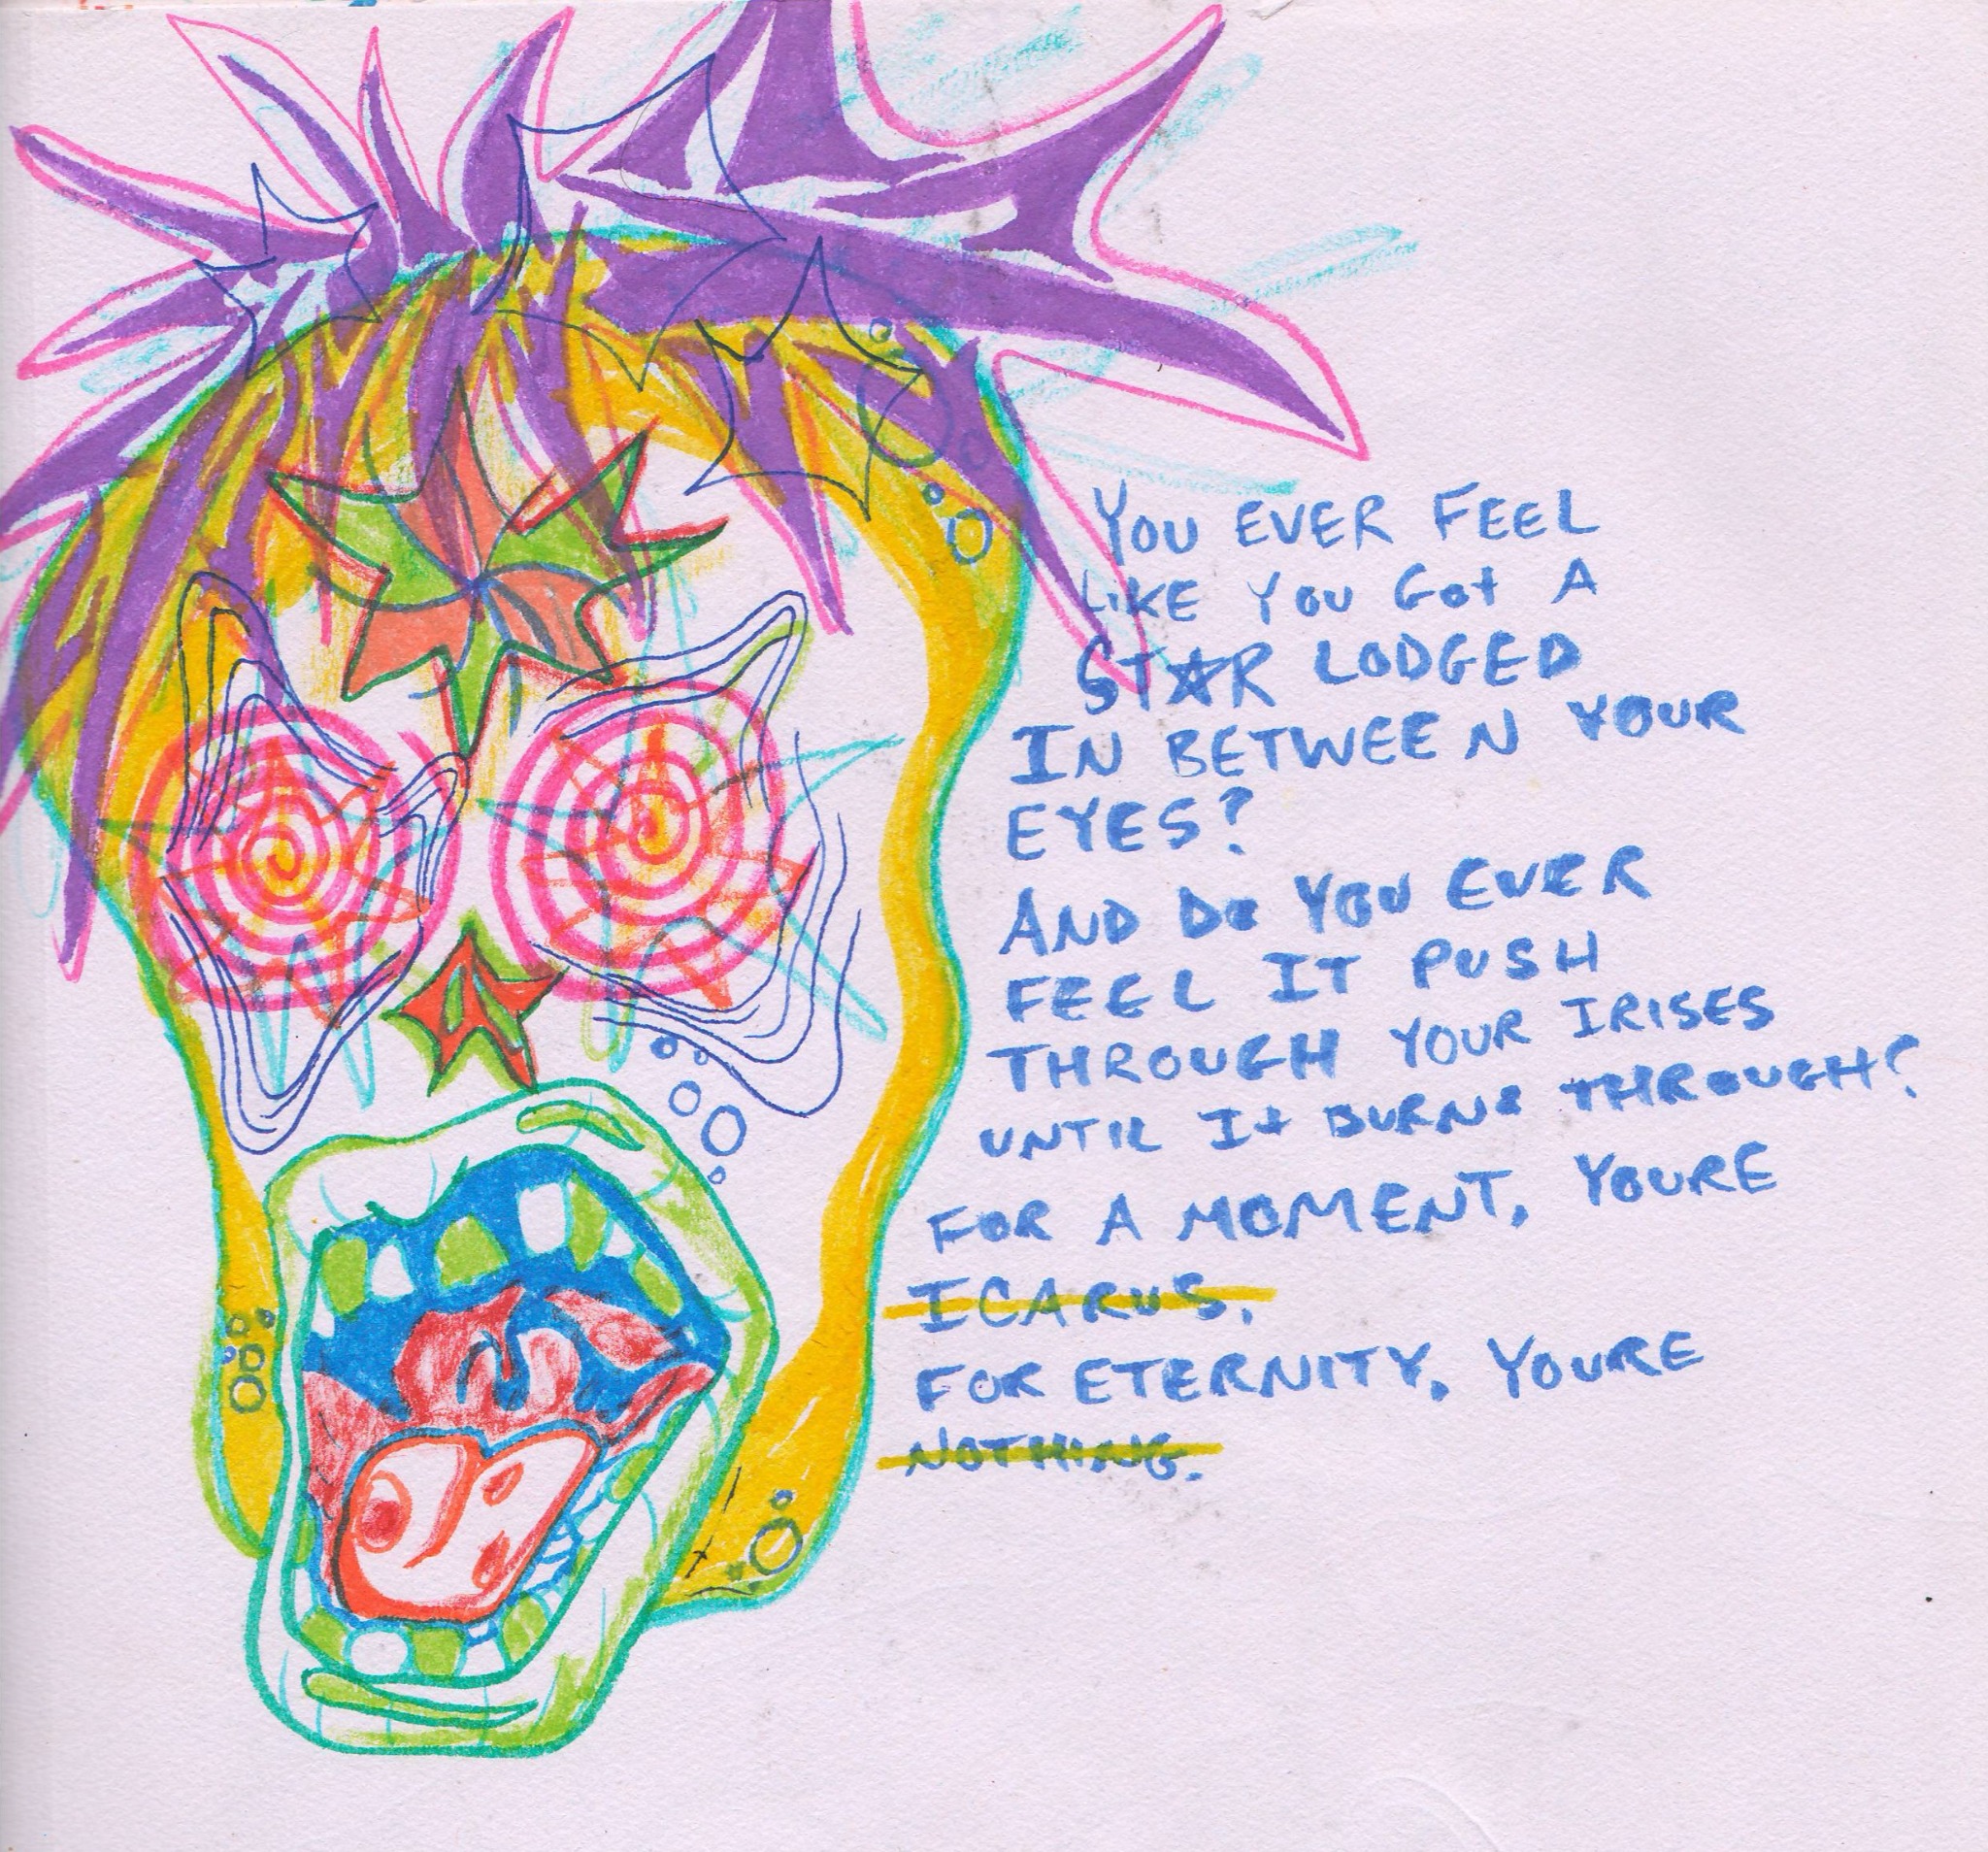 YOU EVER FEEL
LIKE YOU GOt A
STAR LODGED
IN BETWEEN YOUR
EYES?
AND DO YOU EVER
FEEL IT PUSH
THROUGH YOUR IRISES
UNTIL It BURNS THROUGH?
FOR A MOMENT, YOURE
ICARUS.
FOR ETERNITY, YOURE
NOTHING.